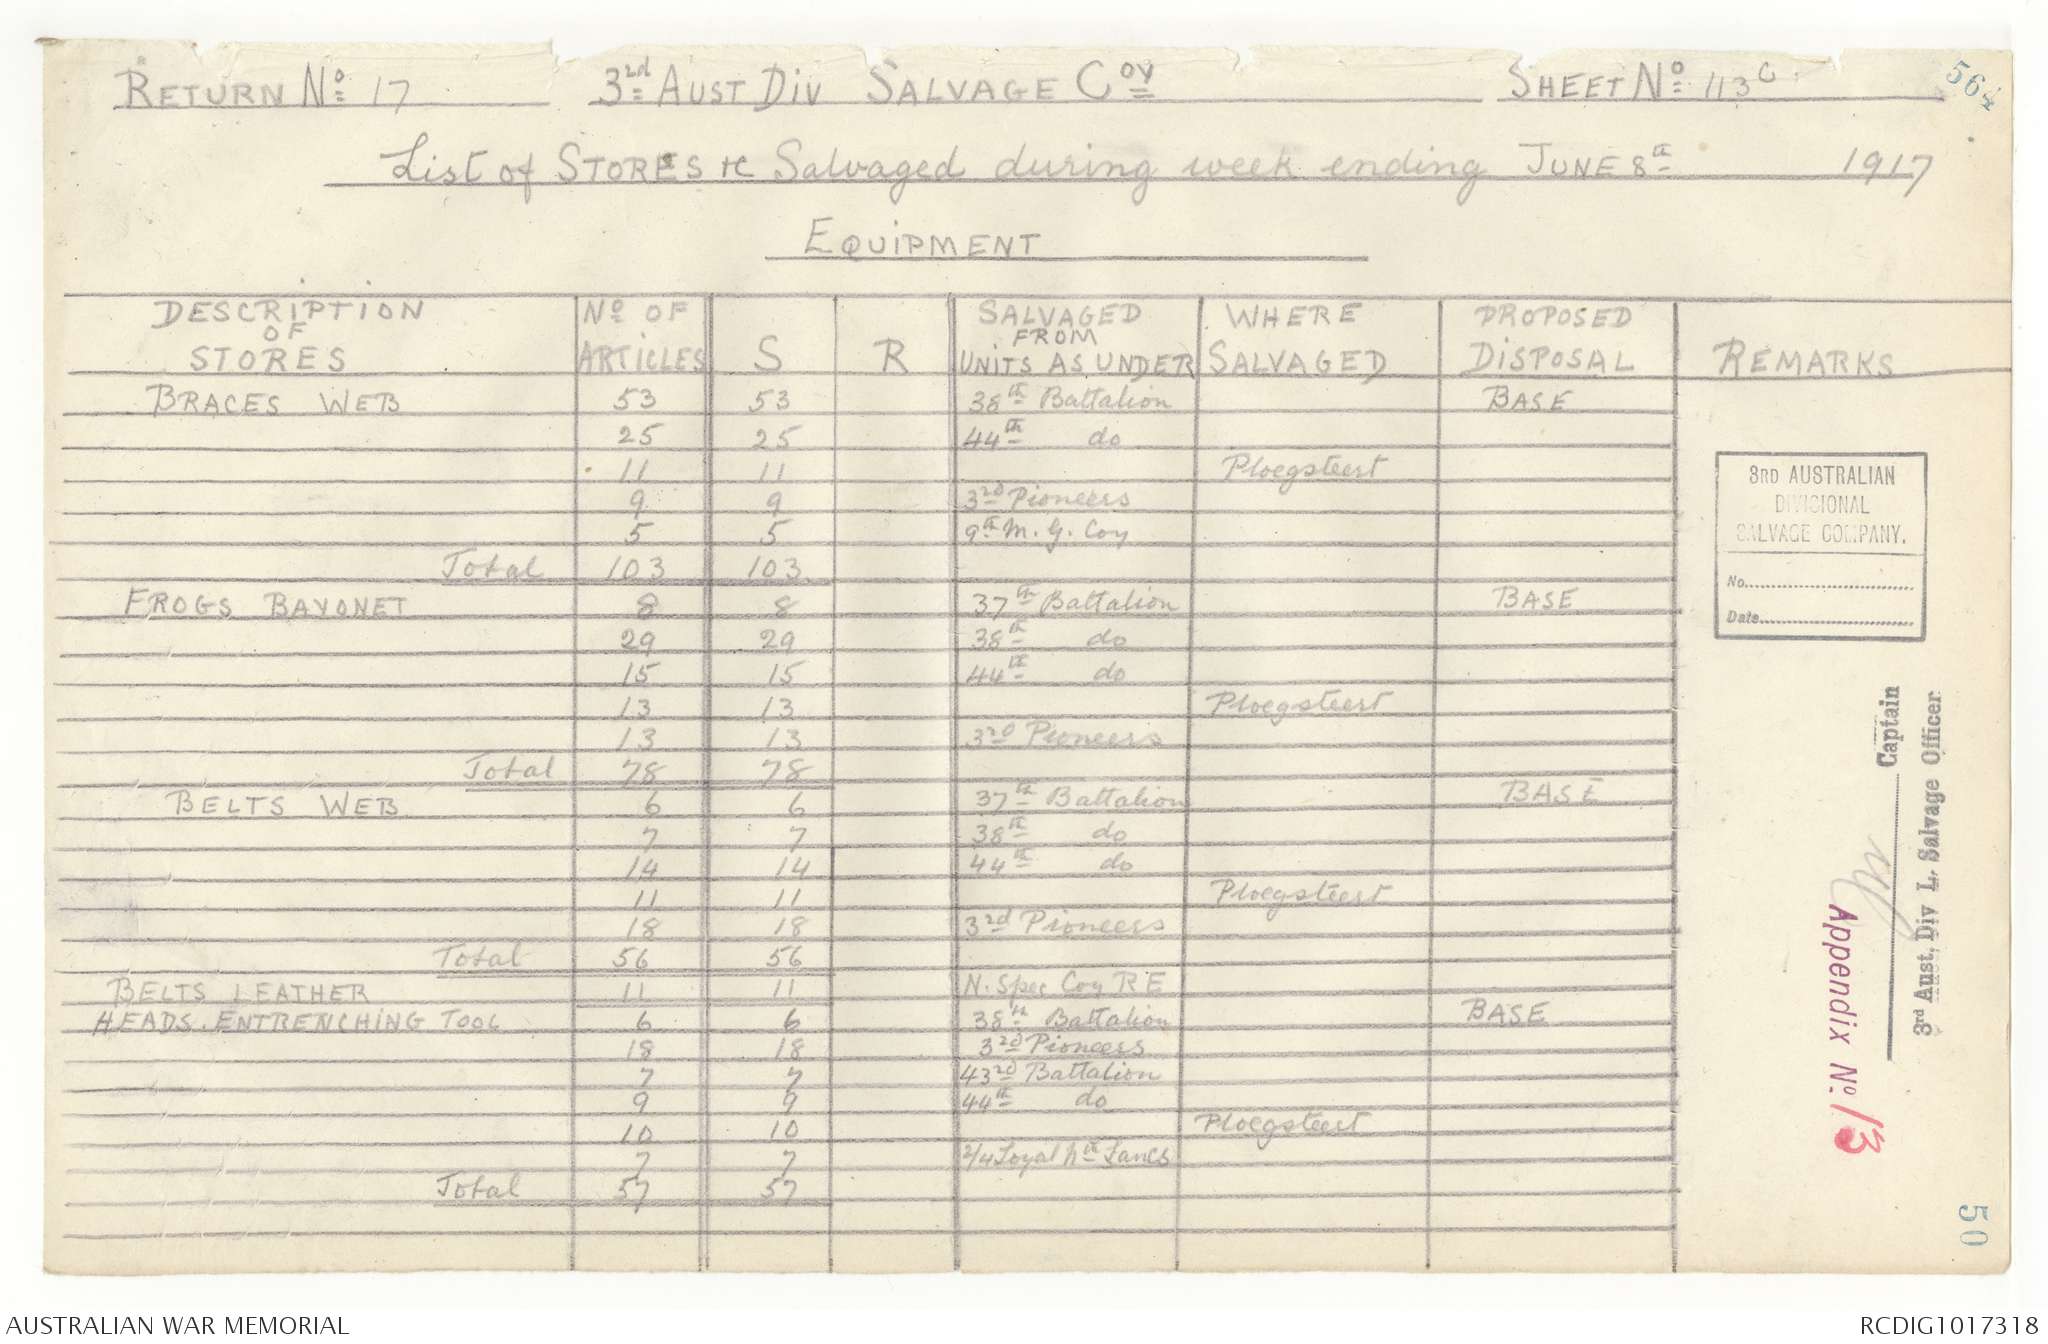 RETURN No 17 3rd AUST DIV SALVAGE Coy SHEET No 113C 564
List of STORES &c Salvaged during week ending JUNE 8th 1917
EQUIPMENT
DESCRIPTION OF STORES No OF ARTICLES S R SALVAGED FROM UNITS AS UNDER WHERE SALVAGED PROPOSED DISPOSAL REMARKS
BRACES WEB 53 53 38th Battalion BASE
25 25 44th do
11 11 Ploegsteert
9 9 3rd Pioneers
5 5 9th M. G. Coy
Total 103 103
FROGS BAYONET 8 8 37th Battalion BASE
29 29 38th do
15 15 44th do
13 13 Ploegsteert
13 13 3rd Pioneers
Total 78 78
BELTS WEB 6 6 37th Battalion BASE
7 7 38th do
14 14 44th do
11 11 Ploegsteert
18 18 3rd Pioneers
Total 56 56
BELTS LEATHER 11 11 N. Spec Coy R E
HEADS. ENTRENCHING TOOL 6 6 38th Battalion BASE
18 18 3rd Pioneers
7 7 43rd Battalion
9 9 44th do
10 10 Ploegsteert
7 7 2/4 Loyal Nth Lancs
Total 57 57
3RD AUSTRALIAN
DIVISIONAL
SALVAGE COMPANY.
No.
Date
Captain
3rd Aust. Div L. Salvage Officer
Appendix No. 13
50
AUSTRALIAN WAR MEMORIAL RCDIG1017318